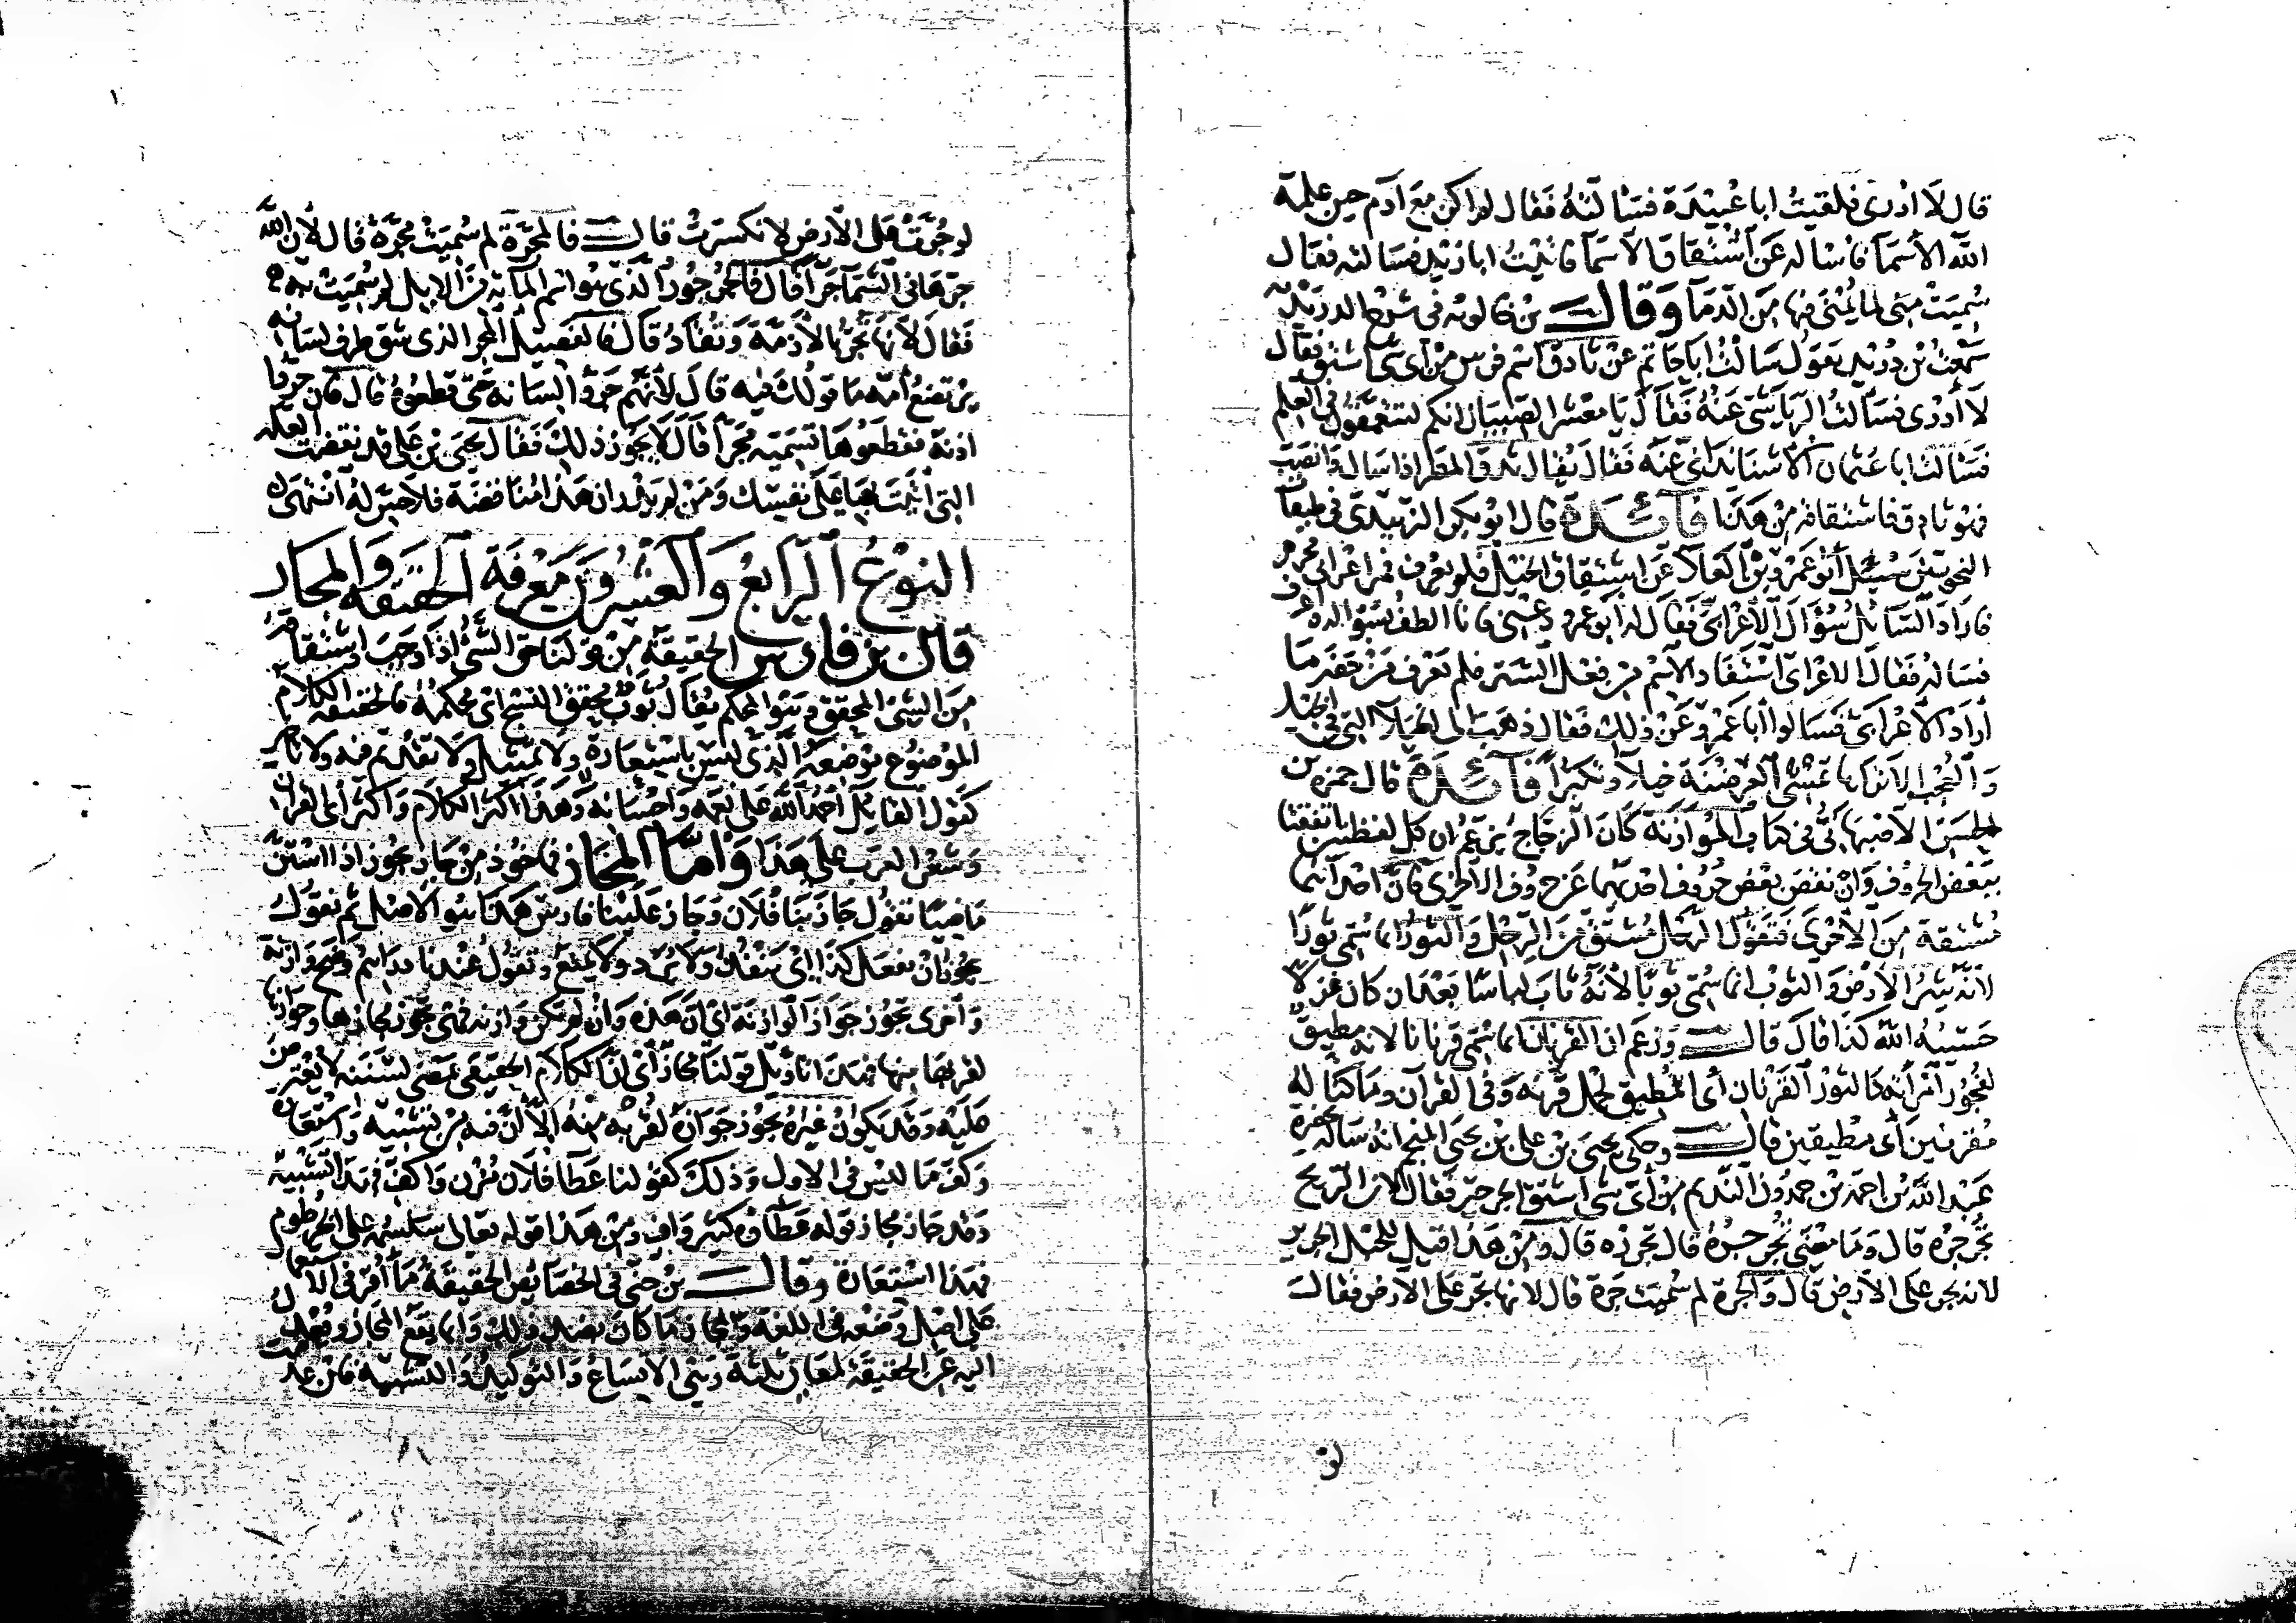 قال لا ادرى فلقيتُ ابا عُبيدة فسَالتهُ فقال لم اكن معَ آدم حين علمه
الله الاسمآ فاسْاله عَن اشتقاق الاسمآ فاتيْتُ ابا زيْد فسَالته فقال
سُميَتْ مِنى لما يُمْنَى فيها مِنَ الدمآ وقال بن خالويْه فى شرح الدريديّة
سَمعْتُ بن دُريْد يَقول سَالتُ ابَا حَاتم عنْ ثادق اسْم فرس منْ اى شئ اشتق فقال
لا أدْرى فسَالتُ الرياشىّ عَنهُ فقال يا معْشر الصّبيان انكم لتتعمّقون فى العِلم
فسَالتُ ابا عثمان الاشناندانىّ عنه فقال يُقال ثدق المطر اذا سال وانصَبّ
فهو ثادق فاشتقاقه منْ هَذا فآئدة قال ابُو بكر الزبيْدى فى طبقات
النحويّين سُئِل أبُو عَمرو بْن العَلاء عَن اشتِقاق الخيْل فلم يعْرف فمر اعْرابى محرم
فارادَ السّائل سُؤال الأعْرابىّ فقال له ابو عمرو دعْنى فانا الطف بسُؤاله
فسَاله فقال الاعْرابى اشتقاق الاسْم من فِعْل السّير فلم يَعْرف مَنْ حَضر مَا
أرَادَ الاعْرابىّ فسَالوا أبا عَمْرو عَنْ ذلك فقال ذهَبَ الى الخُيَلآء التى فى الخيل
وَالعُجْب الا تراها تمْشى العِرَضنة خيلآء وتكبّراً فآئدة قال حمزة بن
الحسَن الاصْبهَانىّ فى كتاب المُوَازَنة كَان الزجّاج يَزعُم ان كل لفظتين اتفقتا
ببَعْض الحرُوف وَانْ نقصَ بعْض حرُوف احْداهما عَن حرُوف الأخرى فان احداهما
مُشتقة مِنَ الأخْرى فتقولُ الرّحل مُشتق مِنَ الرحْل وَالثورُ انما سُمّى ثورًا
لانهُ يُثيرُ الارْض وَالثوْب انما سُمّى ثوبًا لأنه ثابَ لبَاسًا بَعْدان كان غزلا
حَسيبُهُ اللّه كذا قالَ قال وَزعَم ان القرْنان انما سُمّى قرنانا لانه مطيق
لفجُور امْرأته كالثوْر القرْنان أى المُطيق لحمْل قرنه وَفى القرآن وما كنّا له
مُقرنين أى مطيقين قال وحكى يحيَى بْن على بْن يحيَى المنجم انهُ سَاله بحضرة
عَبْد الله بْن احمَد بْن حمدُون النديم مِنْ أىّ شئ اشتق الجرجير فقال لان الريحَ
تُجَرجرهُ قال وَمَا مَعْنَى تُجَرجرُهُ قال تجرّره قال ومنْ هَذا قيلَ للحَبْل الجرير
لانه يجر على الارْض قال وَالجرّة لم سُمّيَت جَرّة قال لانها تجرّ على الارض فقال
لو
لو جُرّتْ على الارْض لانكسرَتْ قال فالمجَرّة لم سُميَتْ مجرّة قال لأن الله
جرّهَا فى السّمآ جرّا قال فالجُرجُور الذى هُو اسْم المآئة من الابل لم سُميَتْ به
فقال لأنها تجرّ بالأزمّة وَتُقادُ قال فالفَصيل المجر الذى شق طرف لسَانه
لئلا يرتضعُ أمّه ما قولك فيه قال لأنهم جَروا لسَانه حتى قطعوهُ قال فان جرّوا
اذنه فقطعُوهَا تسَميه مُجَرًّا قال لا يجُوز ذلك فقال يحيَى بْن على قد نقضتَ العلة
التى أتيْتَ بهَا عَلَى نفسك وَمَنْ لم يَدر ان هَذا مُناقضة فلا حِسّ له انتهَى
النوْعُ الرابعُ وَالعشرُونَ مَعْرفة الحقيقة وَالمجاز
قال بن فارس الحقيقة مِنْ قوْلنا حق الشئ اذا وَجَبَ واشتقاقه
مِنَ الشئ المحقق وَهُو المحكم يُقال ثوبٌ مُحقق النسْج اى محكمهُ فالحقيقة الكلام
المَوضُوع مَوْضِعهُ الذى ليسَ باسْتِعَارة ولا تمثيل وَلا تقدِيم فيه ولا تاخير
كقوْل القائل أحْمَدُ الله عَلى نعَمه وَاحْسَانه وَهَذا اكثر الكلام وَاكثر آى القرآن
وَشعْر العَرَب على هَذا وَامّا المجَاز فماخُوذ منْ جازَ يجُوز اذا اسْتنّ
مَاضيًا تقوُل جَازَ بنا فُلان وَجَاز عَليْنا فارسٌ هَذا هُو الاصْل ثم نقوُل
يجُوز انْ تفعَل كذا اى يَنْفذ وَلا يُرَد ولا يُمنع وَتقوُل عندنا دراهم وضح وازنة
وَاخرى تجُوز جَوازَ الوازنة اى ان هَذه وَانْ لم تكن وَازنة فهى تجوز مجَازها وجوازها
لقربها منها فهَذا تاويْل قولنا مجاز أى انّ الكلام الحقيقى يَمضى لسَننه لا يُعْترض
عَليْه وَقد يَكُون غيْرهُ يَجُوز جَوَازهُ لقرْبه منهُ الا أنّ فيه مِنْ تشبيه وَاسْتعَارة
وَكف مَا ليْسَ فى الاول وَذلك كقولنا عَطآء فلان مُزن وَاكف فهَذا تشبيه
وَقد جَاز مجاز قوله عَطآؤه كثير وَافٍ ومنْ هَذا قوله تعَالى سَنسِمُه على الخرْطوم
فهَذا اسْتِعَارة وقال بن جنّى فى الخصَائص الحقيقة مَا أقرّ فى الاستعمال
عَلى اصْل وَضعه فى اللغة وَالمجاز مَا كان بضدّ ذلك وَانما يَقع المجاز ويُعْدل
اليْه عَن الحقيقة لمعَان ثلثة وهى الاتسَاع وَالتوكيد وَالتشبيه فان عدمت